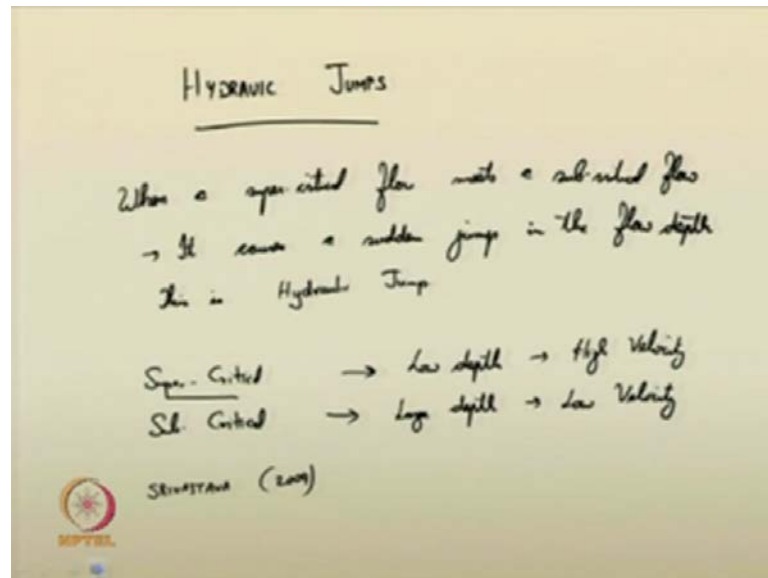 HYDRAVIC JUMPS
When a super-critical flow meets a sub-critical flow
→ It causes a sudden jump in the flow depth
This is Hydraulic Jump
Super-Critical → Low depth → High Velocity
Sub Critical → Large depth → Low Velocity
SRIVASTAVA (2009)
NPTEL